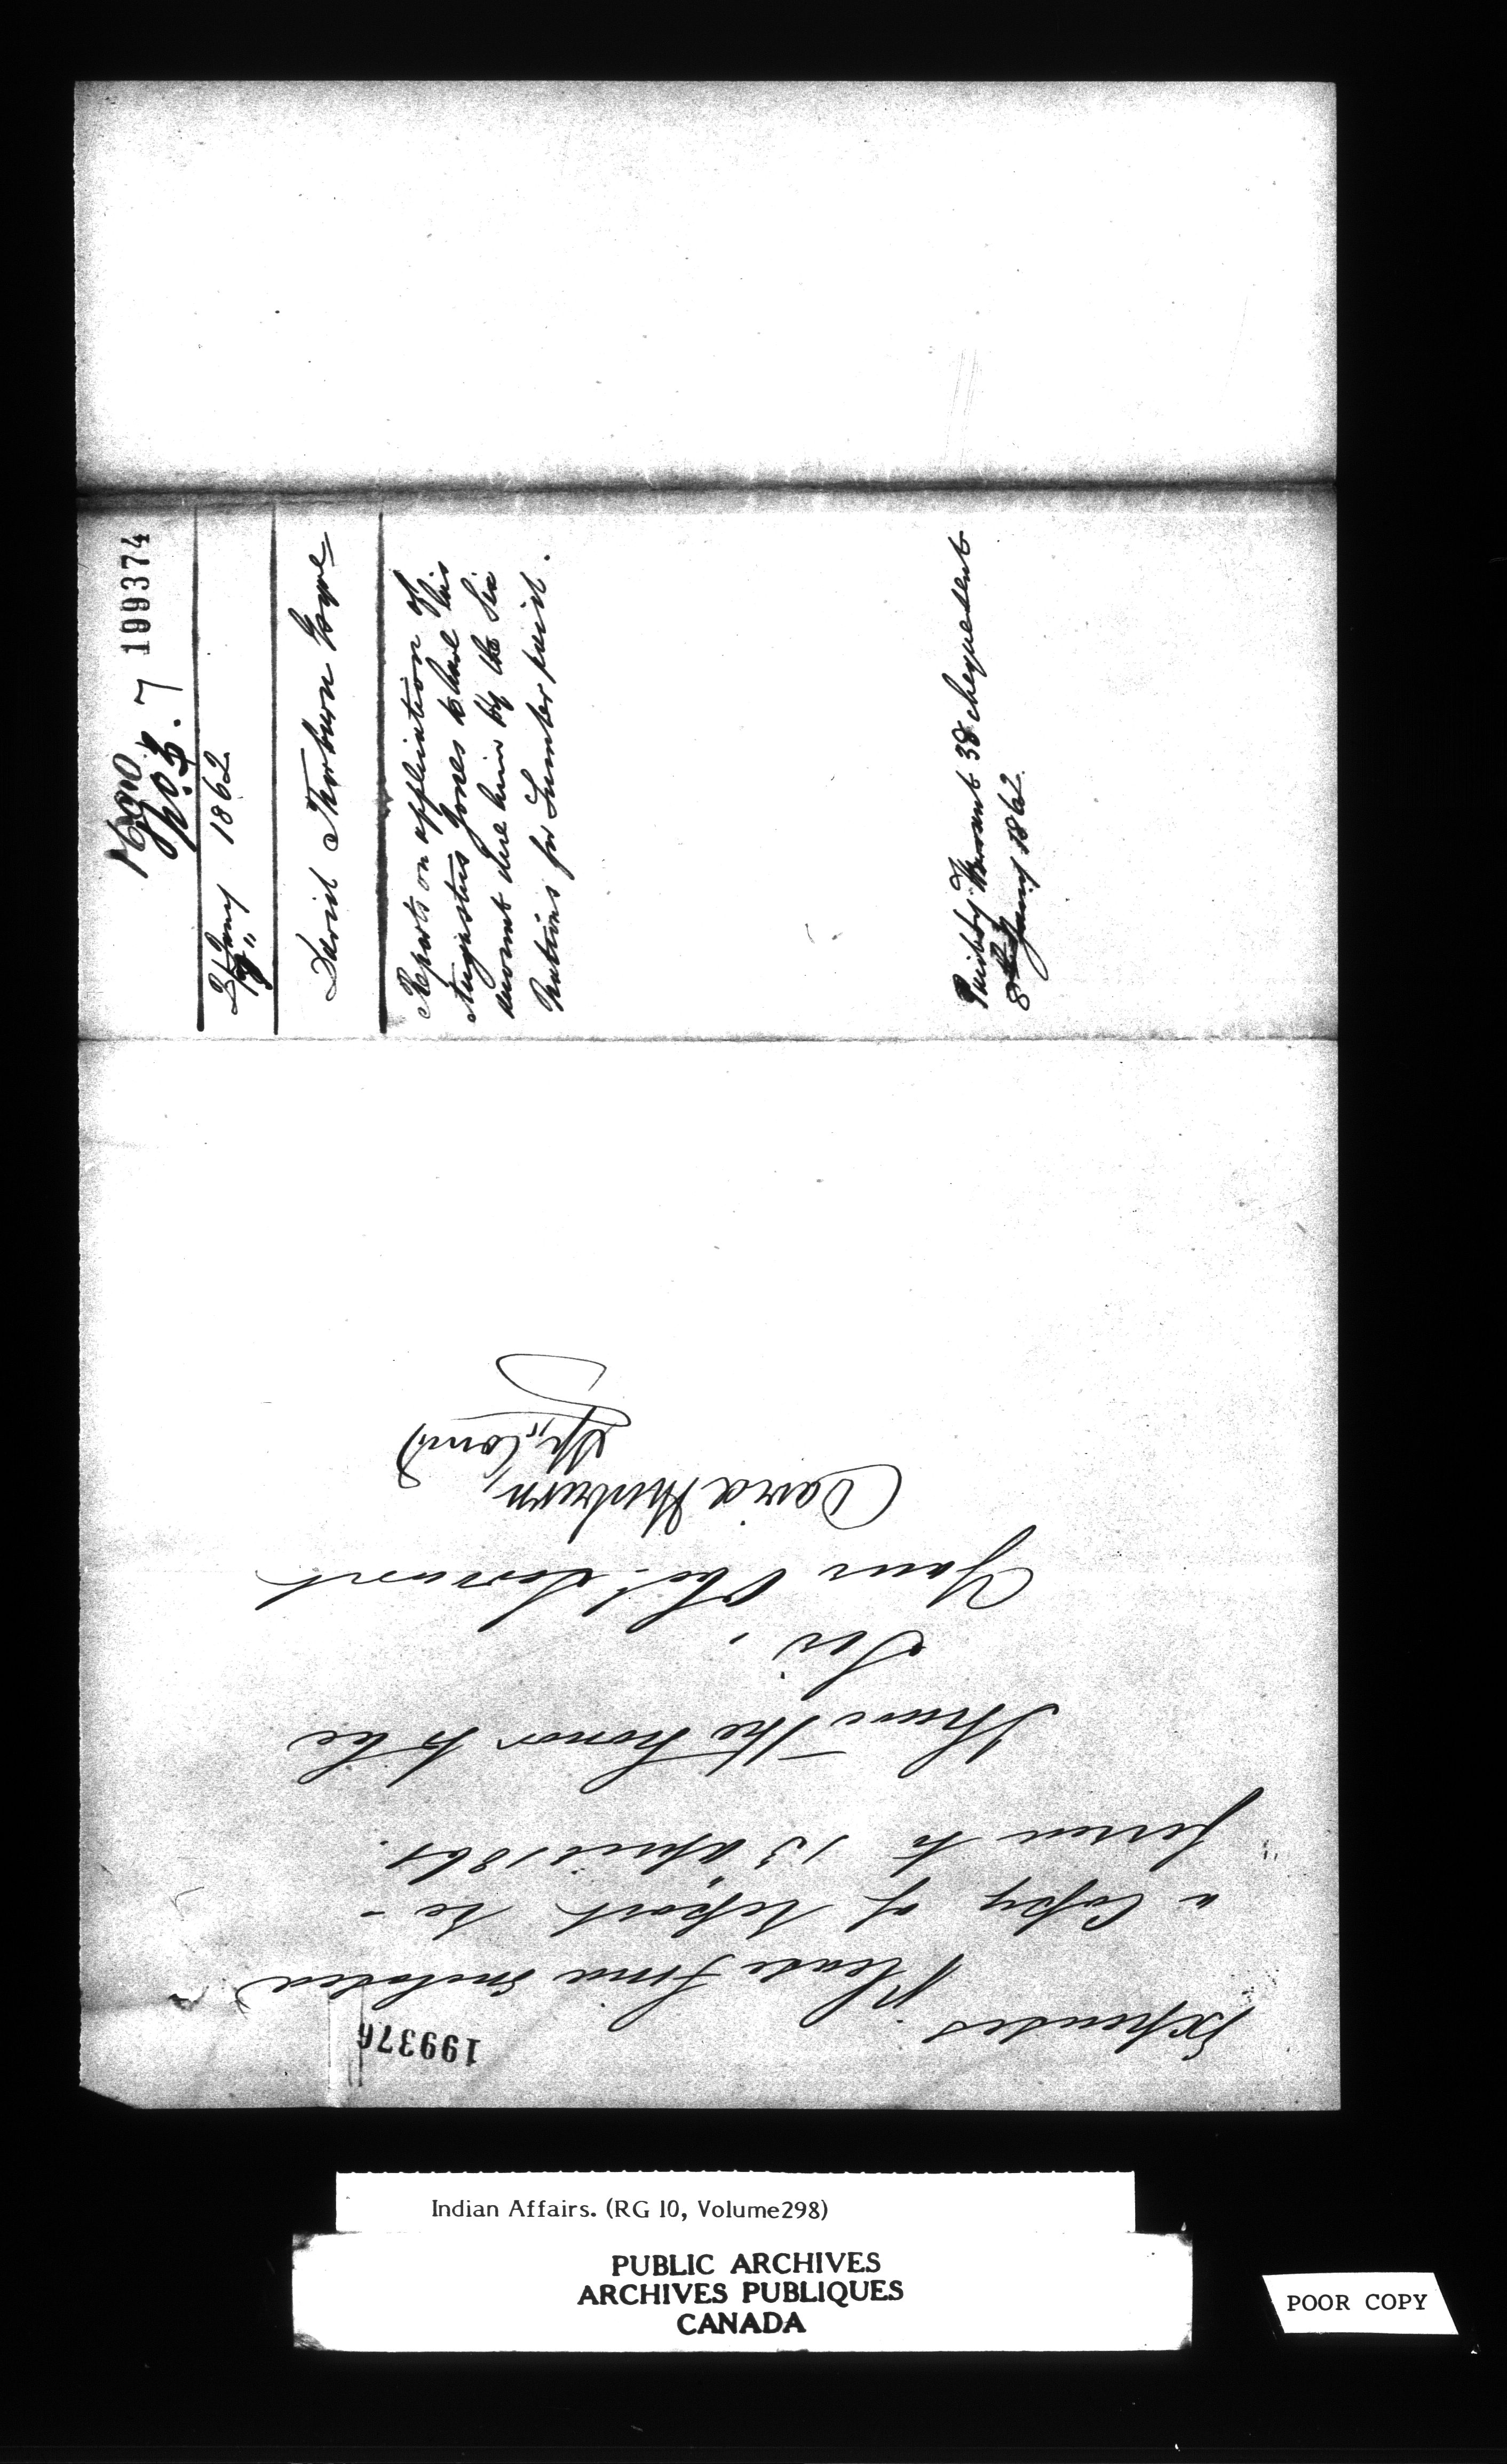 199374
No. 7
3 Jany 1862
David Thorburn Esqre
Reports on application of
Augustus Jones to have his
account due him by the Six
Nations for Lumber paid.
Paid by Warrant 38 cheque sent
8th Jany 1862
199376
Expenses
Please find enclosed
a Copy of report re-
ferred to 13 April 1861.
I have the honor to be
Sir,
Your Obt. Servant
David Thorburn,
Sp. Com.
Indian Affairs. (RG 10, Volume298)
PUBLIC ARCHIVES
ARCHIVES PUBLIQUES
CANADA
POOR COPY